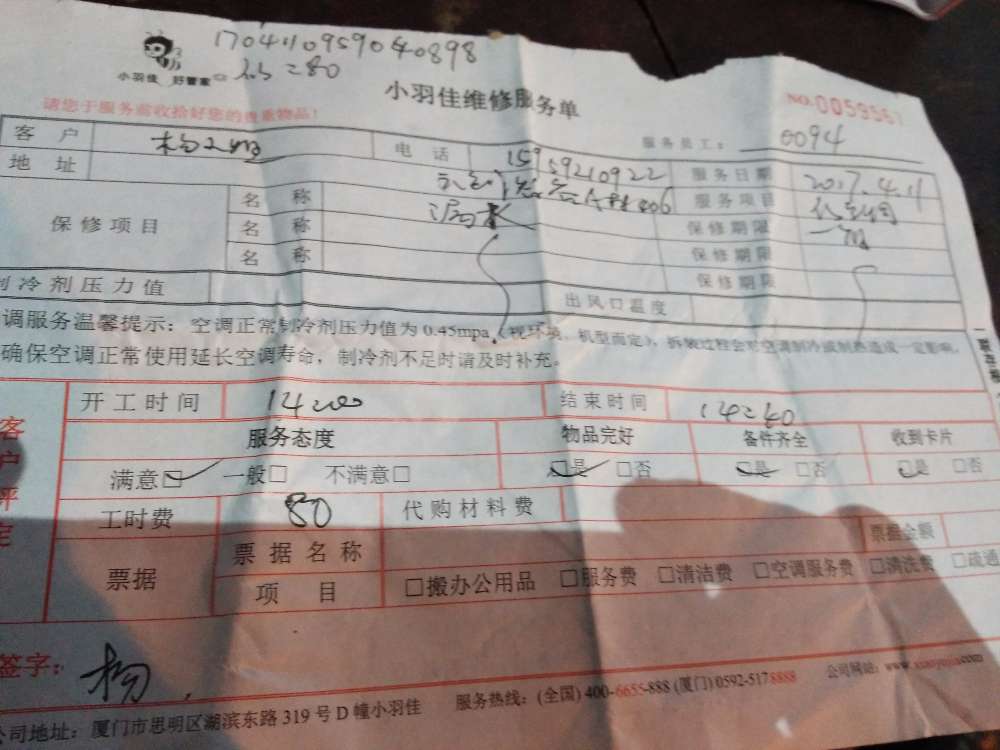 170411095904 0898
=80
小羽佳 好管家
小羽佳维修服务单
NO.0059567
请您于服务前收拾好您的贵重物品!
服务员工: 0094
客户 电话 15959210922 服务日期 2017.4.11
地址 服务项目
保修项目 名称 漏水 保修期限 一个月
名称 保修期限
名称 保修期限
制冷剂压力值 出风口温度
调服务温馨提示: 空调正常制冷剂压力值为0.45mpa(视环境、机型而定), 拆装过程会对空调制冷或制热造成一定影响,
确保空调正常使用延长空调寿命, 制冷剂不足时请及时补充。
客户评定
开工时间 14:00 结束时间 14:40
服务态度 物品完好 备件齐全 收到卡片
满意☑ 一般□ 不满意□ ☑是 □否 ☑是 □否 ☑是 □否
工时费 80 代购材料费
票据 票据名称 票据金额
项目 □搬办公用品 □服务费 □清洁费 □空调服务费 □清洗费 □疏通
签字: 杨
公司地址: 厦门市思明区湖滨东路319号D幢小羽佳 服务热线: (全国) 400-6655-888 (厦门) 0592-5178888 公司网站: www.xiaoyujia.com